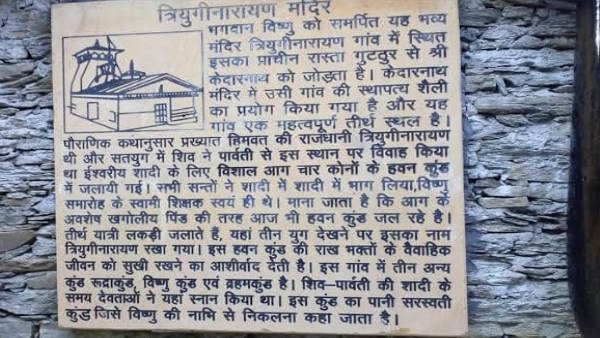 त्रियुगीनारायण मंदिर
भगवान विष्णु को समर्पित यह भव्य
मंदिर त्रियुगीनारायण गांव में स्थित
इसका प्राचीन रास्ता गुटठुर से श्री
केदारनाथ को जोड़ता है। केदारनाथ
मंदिर में उसी गांव की स्थापत्य शैली
का प्रयोग किया गया है और यह
गांव एक महत्वपूर्ण तीर्थ स्थल है।
पौराणिक कथानुसार प्रख्यात हिमवत की राजधानी त्रियुगीनारायण
थी और सतयुग में शिव ने पार्वती से इस स्थान पर विवाह किया
था ईश्वरीय शादी के लिए विशाल आग चार कोनों के हवन कुंड
में जलायी गई। सभी सन्तों ने शादी में शादी में भाग लिया,विष्णु
समारोह के स्वामी शिक्षक स्वयं ही थे। माना जाता है कि आग के
अवशेष खगोलीय पिंड की तरह आज भी हवन कुंड जल रहे है।
तीर्थ यात्री लकड़ी जलाते हैं, यहां तीन युग देखने पर इसका नाम
त्रियुगीनारायण रखा गया। इस हवन कुंड की राख भक्तों के वैवाहिक
जीवन को सुखी रखने का आशीर्वाद देती है। इस गांव में तीन अन्य
कुंड रूद्राकुंड, विष्णु कुंड एवं ब्रहमकुंड है। शिव–पार्वती की शादी के
समय देवताओं ने यहां स्नान किया था। इस कुंड का पानी सरस्वती
कुंड जिसे विष्णु की नाभि से निकलना कहा जाता है।